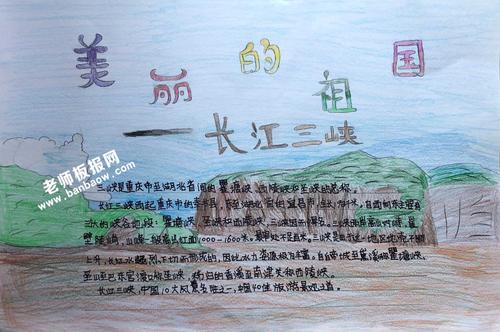 美丽的祖国
一长江三峡
老师板报网
www.banbaow.com
三峡是重庆市至湖北省间的瞿塘峡 西陵峡和巫峡的总称
长江三峡西起重庆市的奉节县,至湖北省的宜昌市,全长 自西向东主要有三
大的峡谷地段:瞿塘峡 巫峡和西陵峡,三峡因而得名。三峡两岸高山对峙,崖
壁陡峭,山峰一般高出江面1000-1600米,最窄处不足百米。三峡是由于这一地区地壳不断
上升,长江水强烈下切而形成的,因此水力资源极为丰富。自白帝城至黛溪称瞿塘峡,
至巴东官渡口称巫峡,秭归的香溪至南津关称西陵峡。
长江三峡,中国10大风景名胜之一,